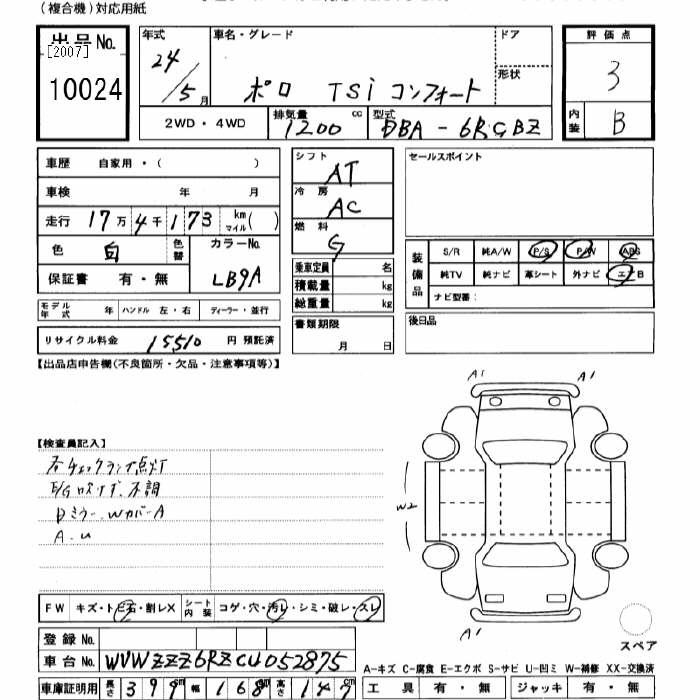 (複合機)対応用紙
出品 No.
[2007]
10024
年式
24/5 月
車名・グレード
ポロ TSi コンフォート
ドア
形状
評価点
3
内装
B
2WD・4WD
排気量
1200 cc
型式
DBA-6RCBZ
車歴 自家用・( )
車検 年 月
走行 17万4千173 km マイル( )
色 白 色替
カラーNo.
LB9A
保証書 有・無
モデル年式 年 ハンドル 左・右 ディーラー・並行
リサイクル料金 15510 円 預託済
シフト
AT
冷房
AC
燃料
G
乗車定員 名
積載量 kg
総重量 kg
書類期限
月 日
セールスポイント
装備品
S/R 純A/W P/S P/W ABS
純TV 純ナビ 革シート 外ナビ エアB
ナビ型番:
後日品
【出品店申告欄(不良箇所・欠品・注意事項等)】
【検査員記入】
チェックランプ点灯
E/G 不調
ミラー、WカバーA
A.U
A1 A1
W2
A1
スペア
FW キズ・トビ石・割レX シート内装 コゲ・穴・汚レ・シミ・破レ・スレ
登録 No.
車台 No. WVWZZZ6RZCU052875
車庫証明用 長さ 399 cm 幅 168 cm 高さ 147 cm
A-キズ C-腐食 E-エクボ S-サビ U-凹ミ W-補修 XX-交換済
工具 有・無 ジャッキ 有・無